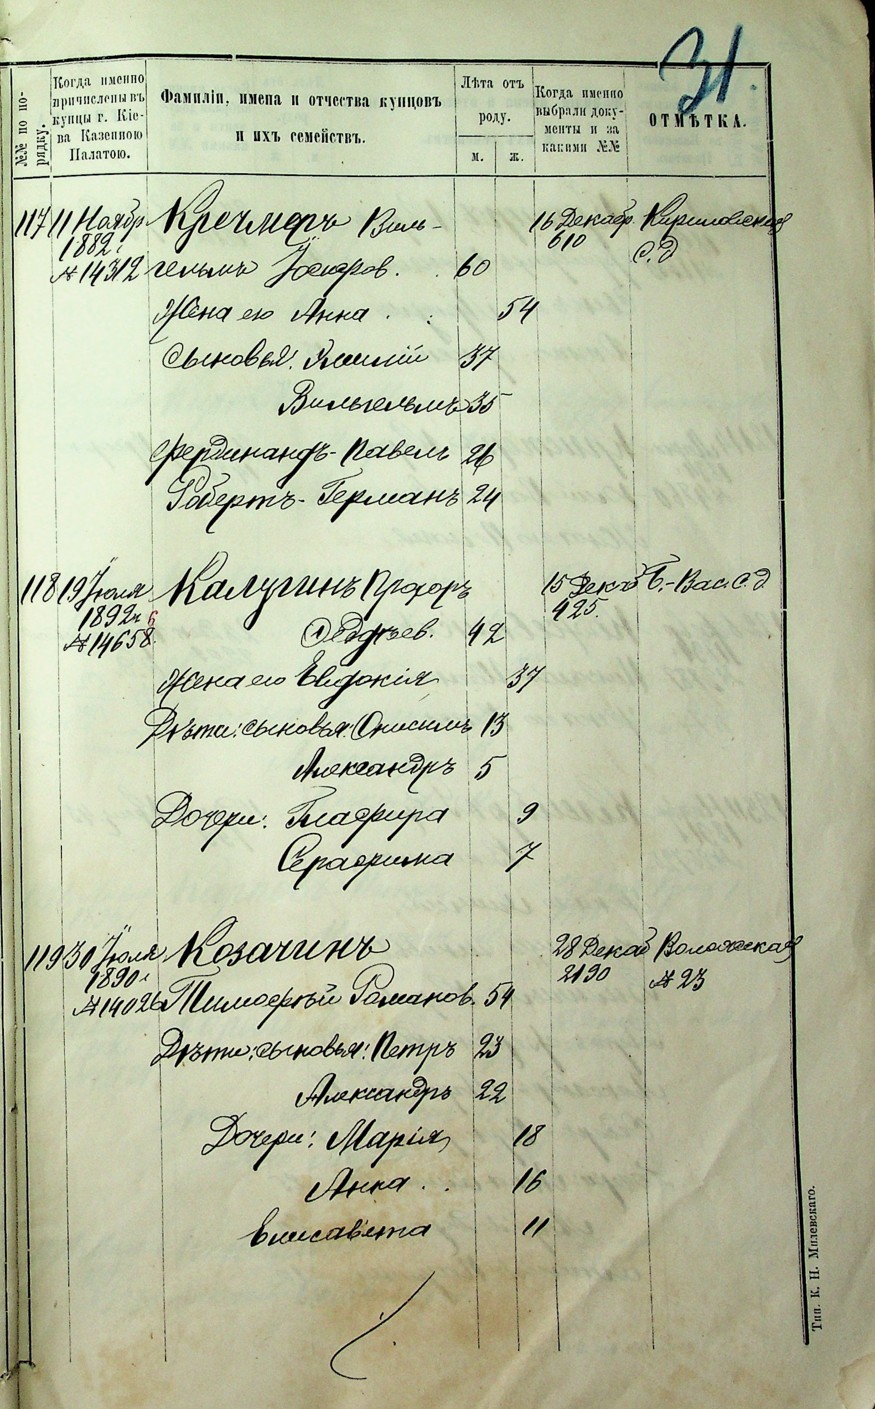 31.
№№ по по-
рядку.
Когда именно
причислены въ
купцы г. Кіе-
ва Казенною
Палатою.
Фамиліи, имена и отчества купцовъ
и ихъ семействъ.
Лѣта отъ
роду.
м. ж.
Когда именно
выбрали доку-
менты и за
какими №№
ОТМѢТКА.
117 11 Ноябр Кречмеръ Виль- 16 Декабр Кириловская
1882 г 610 с. д
№ 14312 гельмъ 60
Жена его Анна . . 54
Сыновья: Эмилій 37
Вильгельмъ 35
Фердинандъ-Павелъ 26
Робертъ-Германъ 24
118 19 Іюля Калугинъ Прохоръ 15 Декаб Б.-Вас. с. д
1892 г 6 425.
№ 14658 42
Жена его Евдокія 37
Дѣти: сыновья: Онисимъ 13
Александръ 5
Дочери: Глафира 9
Серафима 7
119 30 Іюля Козачинъ 28 Декаб Волошская
1890 г 2190 № 23
№ 14026 Тимофѣй Романов. 54
Дѣти: сыновья: Петръ 23
Александръ 22
Дочери: Марія 18
Анна . . 16
Елисавета 11
Тип. К. Н. Милевскаго.